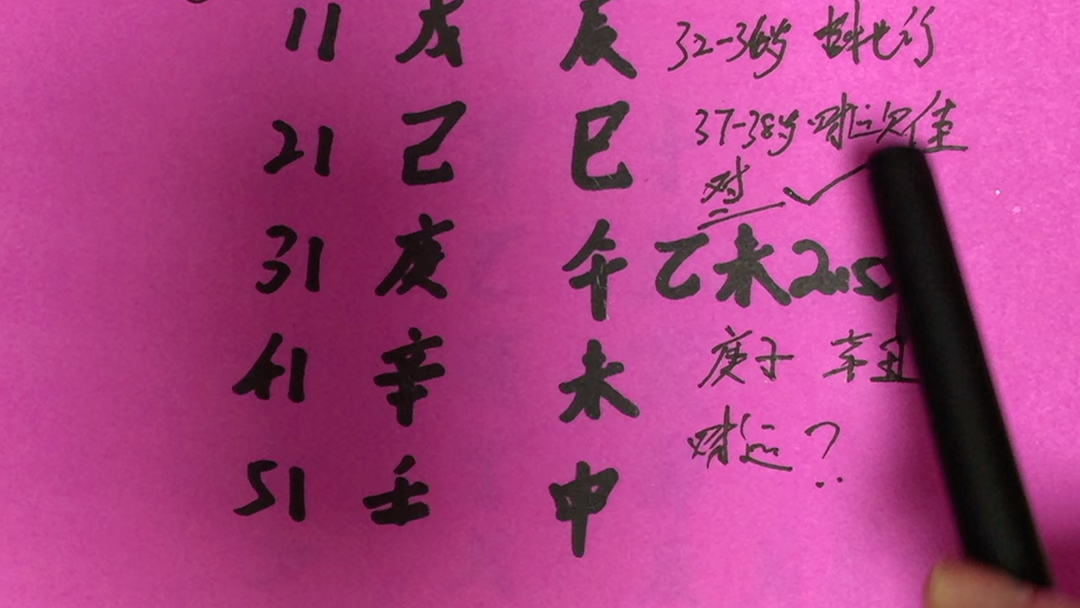 11 戊 辰 32-36岁 财也行
21 己 巳 37-38岁 财运欠佳
对 ✓
31 庚 午 乙未 2015
41 辛 未 庚子 辛丑
财运?
51 壬 申